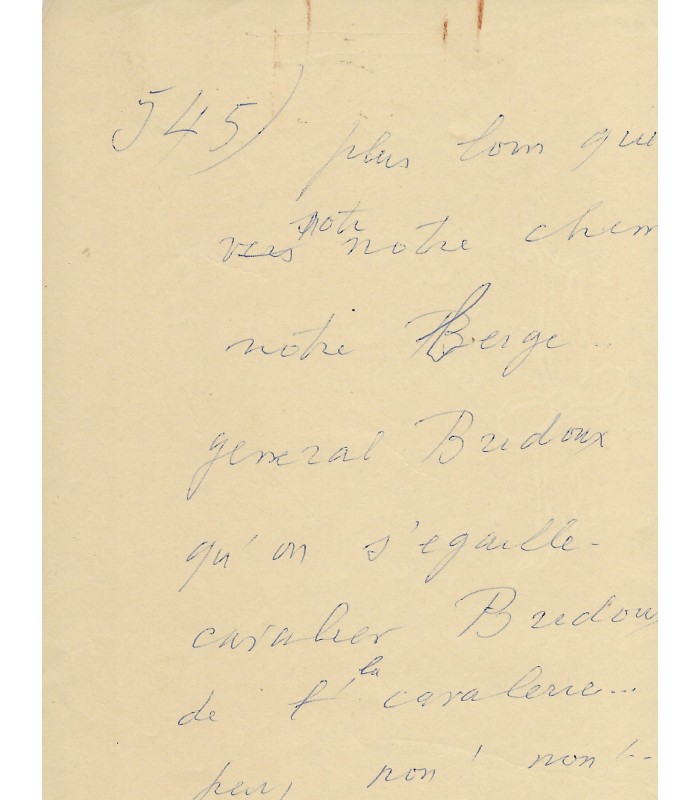 545) plus loin que
vers notre notre chem
notre Berge..
general Bridoux
qu'on s'egaille-
cavalier Bridoux
de l' la cavalerie...
peu, non! non!..